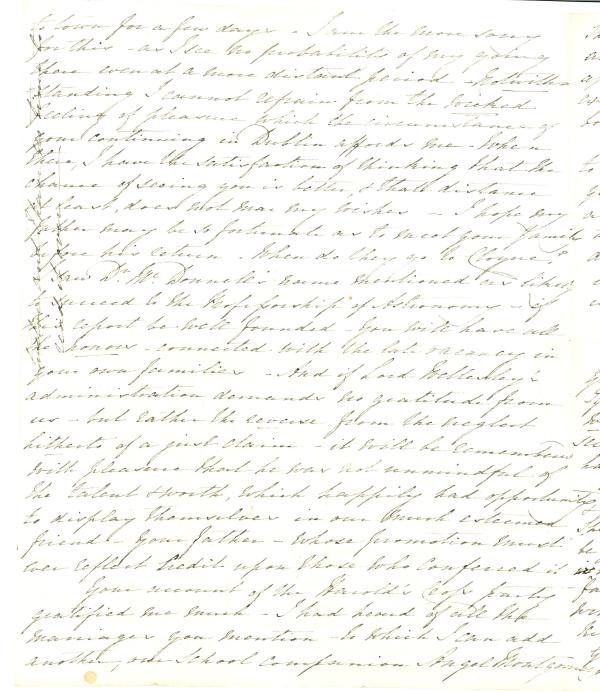 to town for a few days - I am the more sorry
for this - as I see no probability of my going
there even at a more distant period - Notwith=
standing I cannot refrain from the wicked
feeling of pleasure which the circumstance of
your continuing in Dublin affords me - When
there, I have the satisfaction of thinking that the
chance of seeing you is better, & that distance
at least, does not mar my wishes - I hope my
father may be so fortunate as to meet your family
before his return - When do they go to Cloyne?
I saw Dr. Mc Donnell's name mentioned as likely
to succeed to the Professorship of Astronomy - if
this report be well founded - You will have all
the honors - connected with the late vacancy in
your own families - And if Lord Wellesley's
administration demands no gratitude from
us - but rather the reverse from the neglect
hitherto of a just claim - it will be remembered
with pleasure that he was not unmindful of
the talent & worth, which happily had opportunity
to display themselves in our much esteemed
friend - Your father - whose promotion must
ever reflect credit upon those who conferred it
Your account of the Harold's Cross party
gratified me much - I had heard of all the
marriages you mention - to which I can add
another, our School companion Angel Montgomery